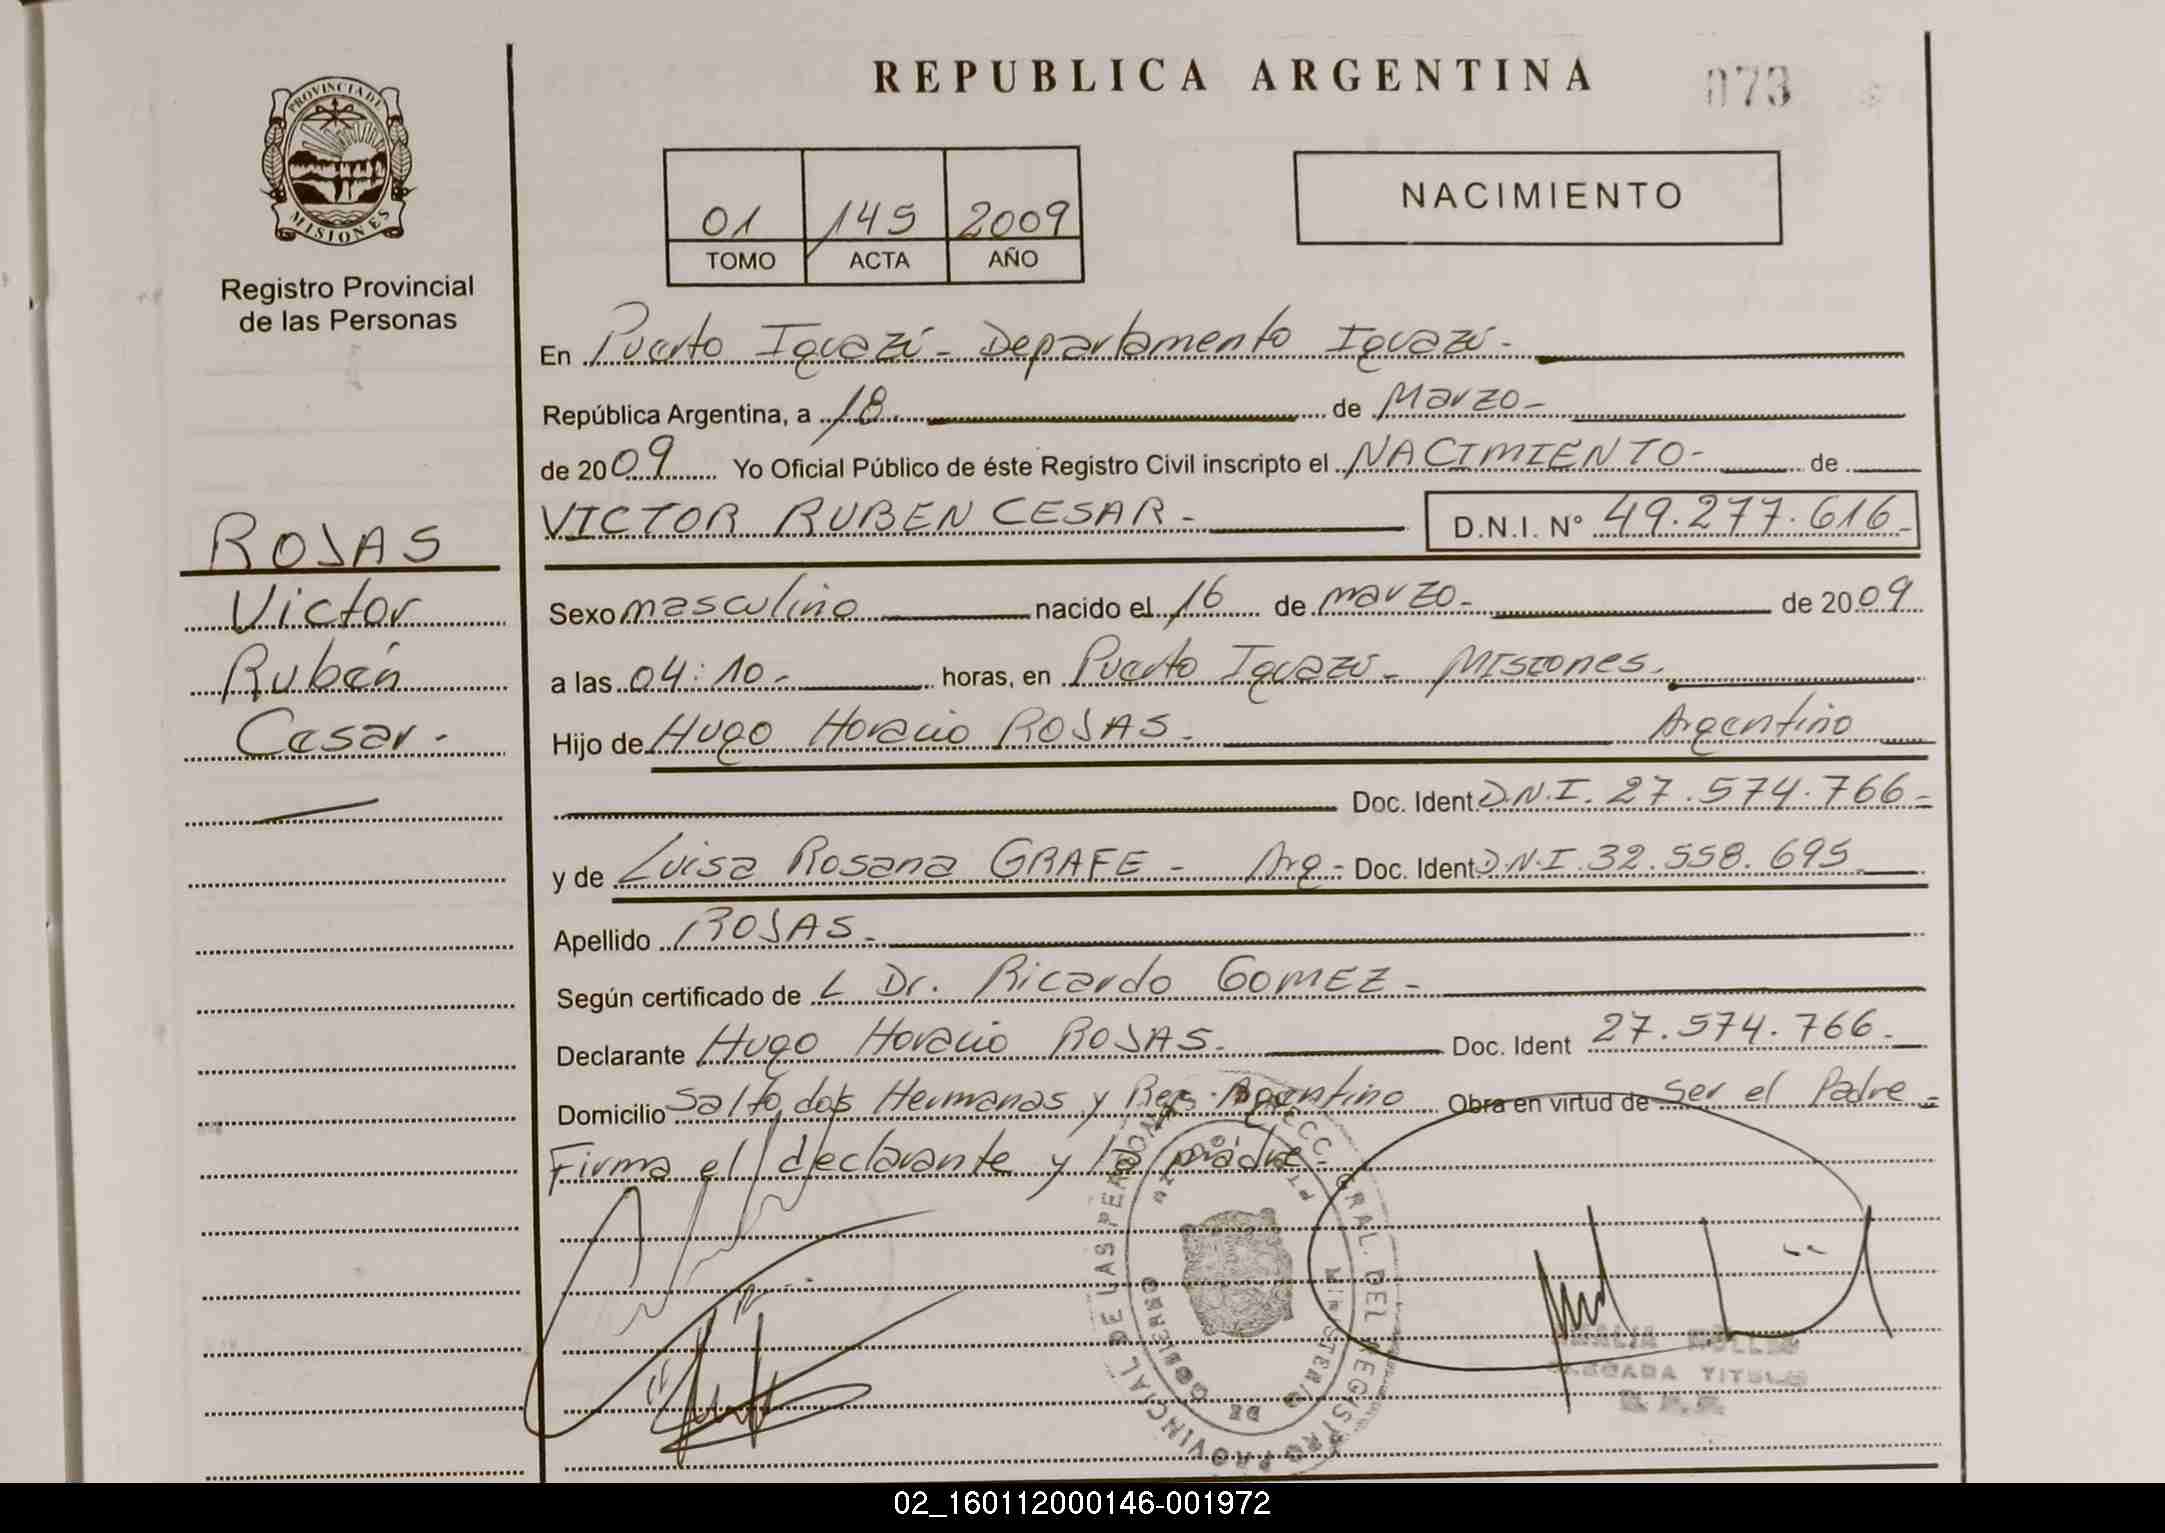 REPUBLICA ARGENTINA
073
PROVINCIA DE
MISIONES
Registro Provincial
de las Personas
01 145 2009
TOMO ACTA AÑO
NACIMIENTO
En Puerto Iguazú - Departamento Iguazú -
República Argentina, a 18 de Marzo -
de 2009 Yo Oficial Público de éste Registro Civil inscripto el NACIMIENTO - de
VICTOR RUBEN CESAR - D.N.I. N° 49.277.616 -
ROJAS
Victor
Rubén
Cesar -
Sexo masculino nacido el 16 de marzo - de 2009
a las 04:10 - horas, en Puerto Iguazú - Misiones.
Hijo de Hugo Horacio ROJAS - Argentino
Doc. Ident. D.N.I. 27.574.766 -
y de Luisa Rosana GRAFE - Arg - Doc. Ident D.N.I. 32.558.695
Apellido ROJAS -
Según certificado de L Dr. Ricardo GOMEZ -
Declarante Hugo Horacio ROJAS - Doc. Ident 27.574.766 -
Domicilio Salto dos Hermanas y Rep. Argentino Obra en virtud de Ser el Padre -
Firma el declarante y la madre -
DIRECC. GRAL. DEL REGISTRO PROVINCIAL DE LAS PERSONAS
MINISTERIO DE GOBIERNO
TITULAR
02_160112000146-001972